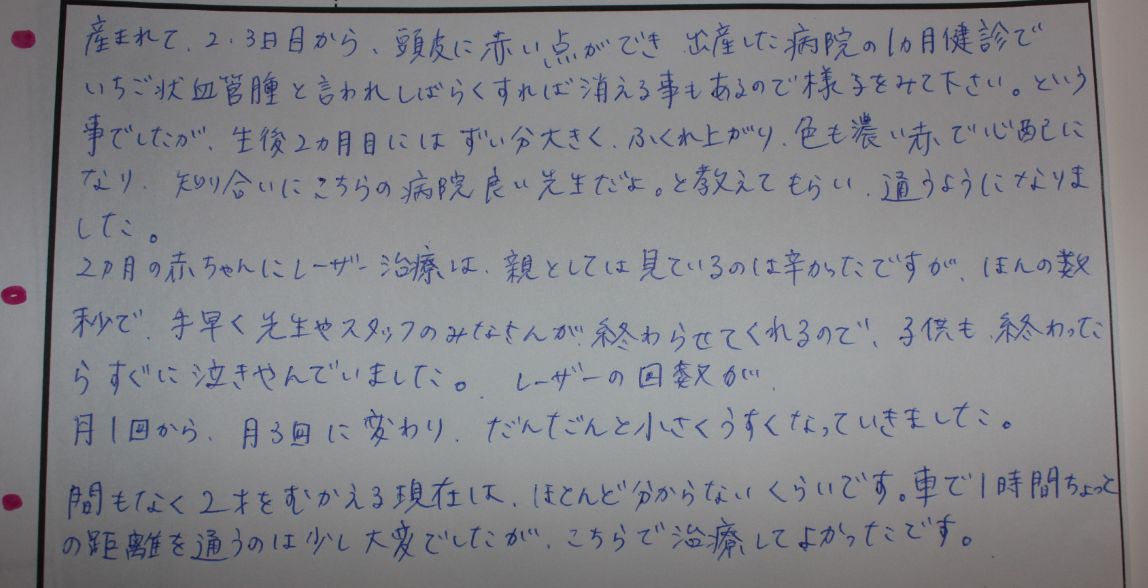 産まれて、2、3日目から、頭皮に赤い点ができ 出産した病院の1ヵ月健診で
いちご状血管腫と言われしばらくすれば消える事もあるので様子をみて下さい。という
事でしたが、生後2ヵ月目にはずい分大きく、ふくれ上がり、色も濃い赤で心配に
なり、知り合いにこちらの病院良い先生だよ。と教えてもらい、通うようになりま
した。
2ヵ月の赤ちゃんにレーザー治療は、親としては見ているのは辛かったですが、ほんの数
秒で、手早く先生やスタッフのみなさんが終わらせてくれるので、子供も、終わった
らすぐに泣きやんでいました。 レーザーの回数が、
月1回から、月3回に変わり、だんだんと小さくうすくなっていきました。
間もなく2才をむかえる現在は、ほとんど分からないくらいです。車で1時間ちょっと
の距離を通うのは少し大変でしたが、こちらで治療してよかったです。